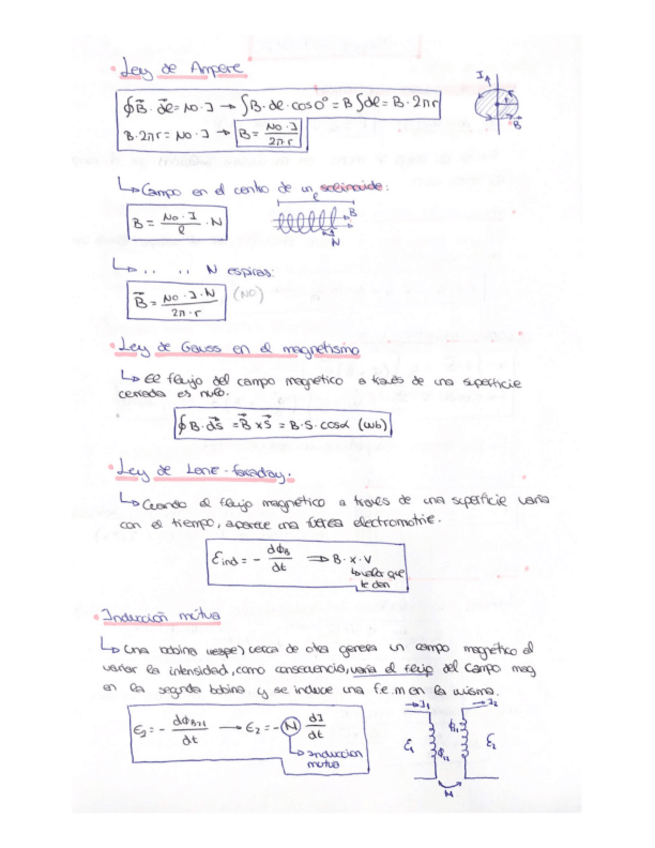 Ley de Ampere
∮B⃗·dl⃗ = No·I → ∫B·dl·cos0° = B∫dl = B·2πr
B·2πr = No·I → B = No·I / 2πr
I
r
B
↳ Campo en el centro de un solinoide:
B = No·I / l · N
l
B
N
↳ .. .. N espiras:
B⃗ = No·I·N / 2π·r (NO)
Ley de Gauss en el magnetismo
↳ El flujo del campo magnético a través de una superficie
cerrada es nulo.
∮B·dS⃗ = B⃗ x S⃗ = B·S·cosα (wb)
Ley de Lenz-faraday.
↳ Cuando el flujo magnético a través de una superficie varía
con el tiempo, aparece una fuerza electromotriz.
εind = - dΦB / dt ⇒ B·x·v
↳ valor que
te den
Inducción mutua
↳ Una bobina cerca de otra genera un campo magnético al
variar la intensidad, como consecuencia, varía el flujo del campo mag
en la segunda bobina y se induce una f.e.m en la misma.
ε2 = - dΦB21 / dt → ε2 = - M dI / dt
↳ Inducción
mutua
→I1 →I2
ε1 Φ12 Φ21 ε2
M